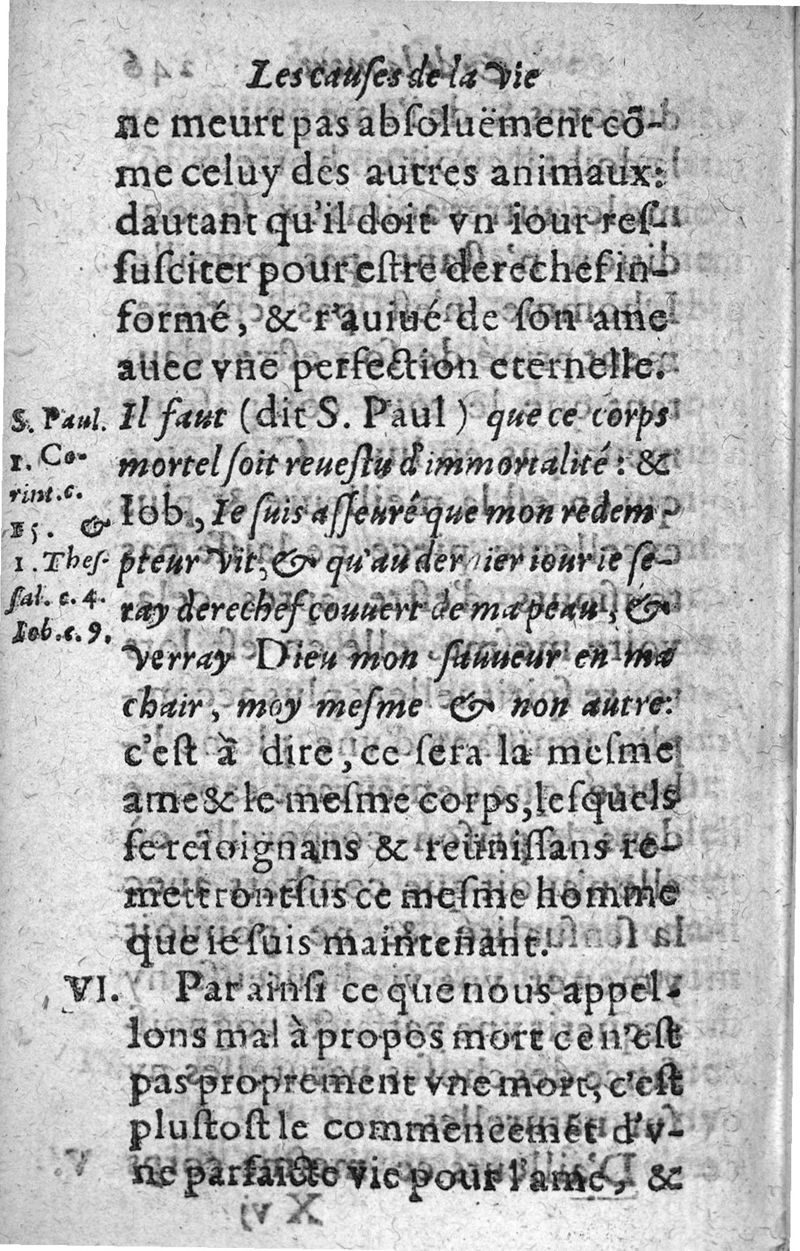 Les causes de la Vie
ne meurt pas absoluëment cõ-
me celuy des autres animaux:
dautant qu'il doit vn iour res-
susciter pour estre derechef in-
formé, & r'auiué de son ame
auec vne perfection eternelle.
Il faut (dit S. Paul) que ce corps
mortel soit reuestu d'immortalité: &
Iob, Ie suis asseuré que mon redem-
pteur Vit, & qu'au dernier iour ie se-
ray derechef couuert de ma peau, &
Verray Dieu mon sauueur en ma
chair, moy mesme & non autre:
c'est à dire, ce sera la mesme
ame & le mesme corps, lesquels
se reioignans & reünissans re-
mettront sus ce mesme homme
que ie suis maintenant.
S. Paul.
1. Co-
rint. c.
15. &
1. Thes-
sal. c. 4.
Iob. c. 9.
VI. Par ainsi ce que nous appel-
lons mal à propos mort ce n'est
pas proprement vne mort, c'est
plustost le commencemẽt d'v-
ne parfaicte vie pour l'ame, &